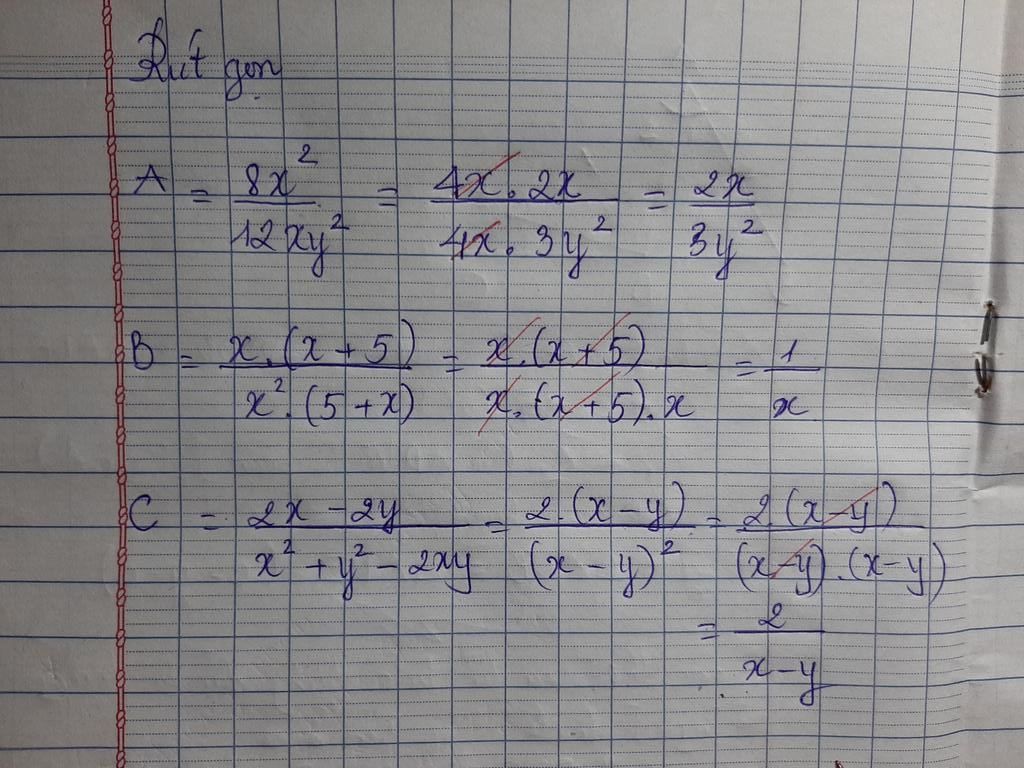 Rút gọn
A = 8x²/12xy² = 4x.2x/4x.3y² = 2x/3y²
B = x.(x + 5)/x².(5 + x) = x.(x + 5)/x.(x + 5).x = 1/x
C = 2x - 2y/x² + y² - 2xy = 2.(x - y)/(x - y)² = 2.(x - y)/(x - y).(x - y)
= 2/x - y